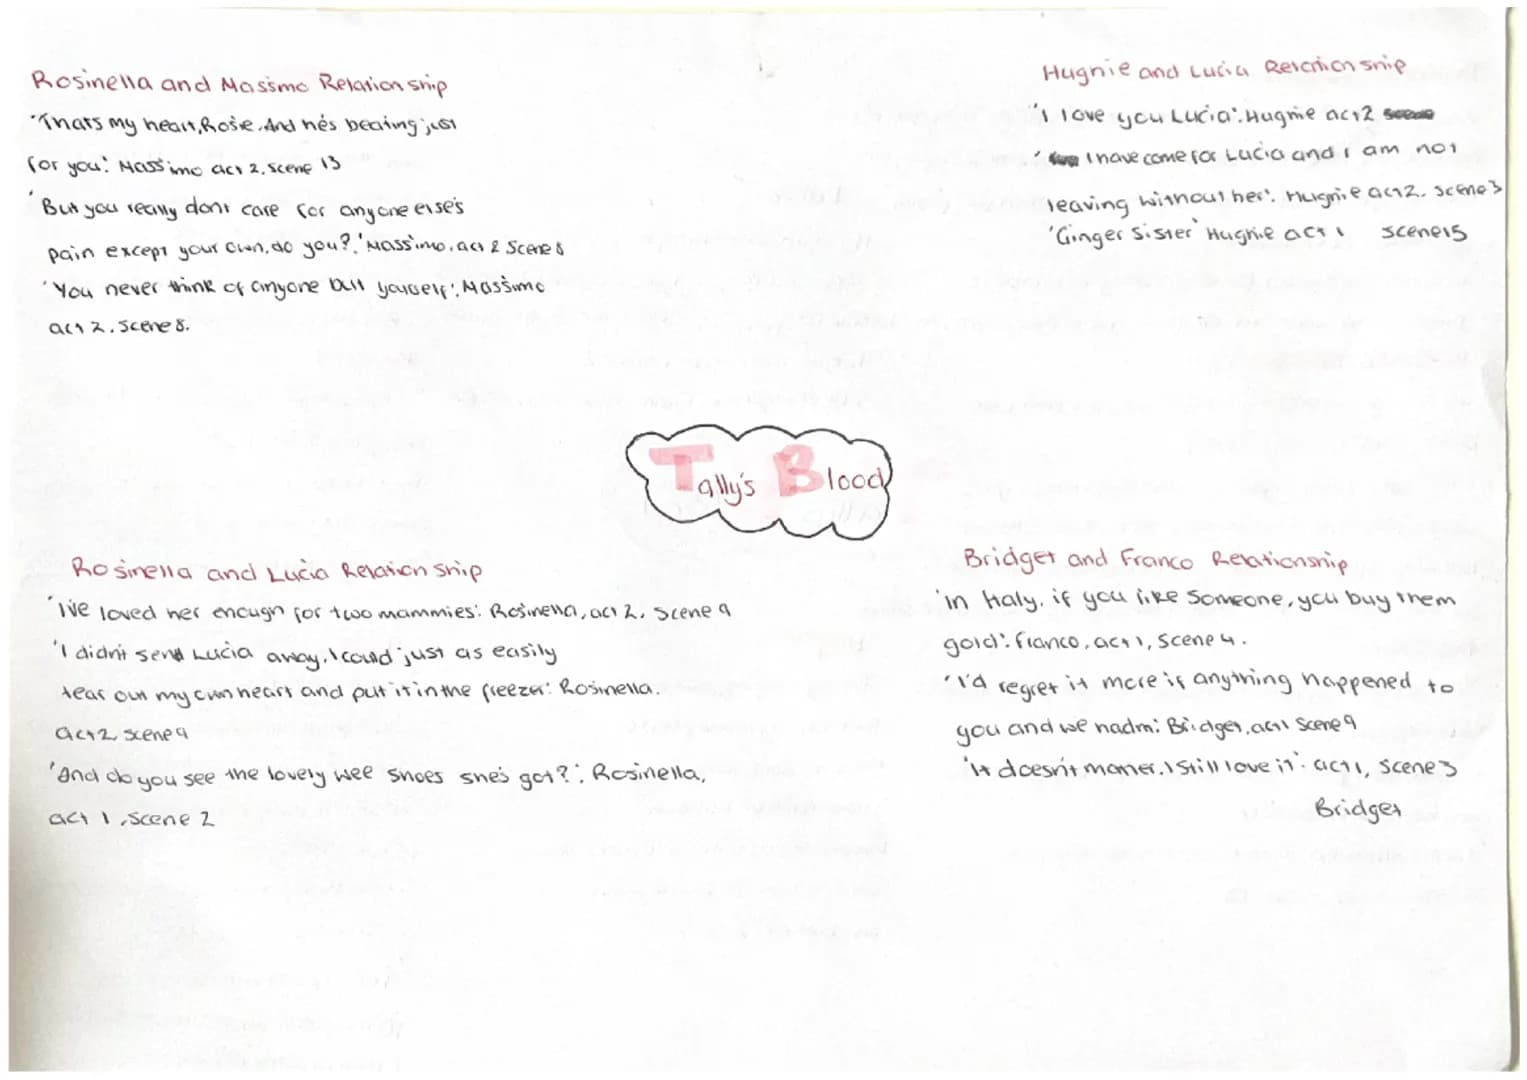 Rosinella and Massimo Relationship
"Thats my heart, Rosie. And he's beating just
for you'. Massimo act 2, scene 13
'But you really dont care for anyone else's
pain except your own, do you?.' Massimo, act 2 Scene 8
'You never think of anyone but yourself'. Massimo
act 2. Scene 8.
Hughie and Lucia Relationship
'I love you Lucia'. Hughie act 2
'I have come for Lucia and I am not
leaving without her'. Hughie act 2. Scene 3
'Ginger Sister' Hughie act 1 scene 15
Tally's Blood
Rosinella and Lucia Relationship
'I've loved her enough for two mammies'. Rosinella, act 2. Scene 9
'I didn't send Lucia away. I could just as easily
tear out my own heart and put it in the freezer'. Rosinella.
act 2, scene 9
'And do you see the lovely wee shoes she's got?'. Rosinella,
act 1, Scene 2
Bridget and Franco Relationship
'In Italy, if you like Someone, you buy them
gold'. franco, act 1, scene 4.
'I'd regret it more if anything happened to
you and we hadn'. Bridget, act 1 Scene 9
'It doesn't matter. I Still love it'. act 1, Scene 3
Bridget